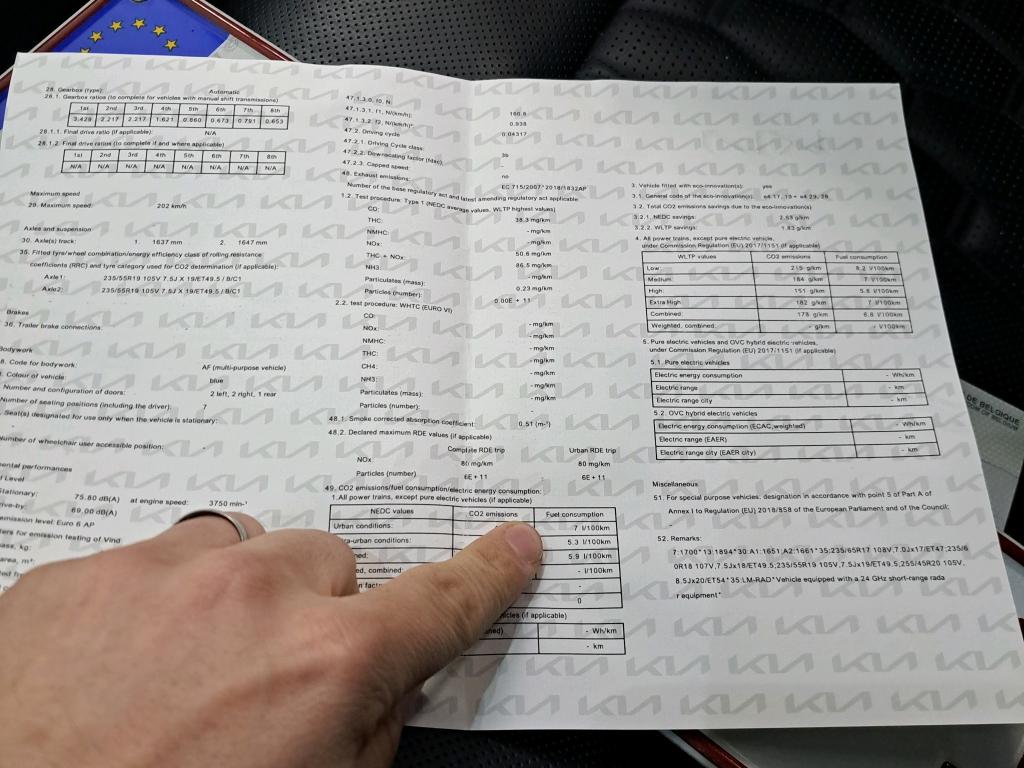 28. Gearbox (type): Automatic
28.1. Gearbox ratios (to complete for vehicles with manual shift transmissions)
1st 2nd 3rd 4th 5th 6th 7th 8th
3.429 2.217 2.217 1.621 0.860 0.673 0.791 0.653
28.1.1. Final drive ratio (if applicable): N/A
28.1.2. Final drive ratios (to complete if and where applicable)
1st 2nd 3rd 4th 5th 6th 7th 8th
N/A N/A N/A N/A N/A N/A N/A N/A
Maximum speed
29. Maximum speed: 202 km/h
Axles and suspension
30. Axle(s) track: 1. 1637 mm 2. 1647 mm
35. Fitted tyre/wheel combination/energy efficiency class of rolling resistance
coefficients (RRC) and tyre category used for CO2 determination (if applicable):
Axle1: 235/55R19 105V 7.5J X 19/ET49.5 / B/C1
Axle2: 235/55R19 105V 7.5J X 19/ET49.5 / B/C1
Brakes
36. Trailer brake connections:
Bodywork
8. Code for bodywork: AF (multi-purpose vehicle)
Colour of vehicle: blue
Number and configuration of doors: 2 left, 2 right, 1 rear
Number of seating positions (including the driver): 7
Seat(s) designated for use only when the vehicle is stationary:
-
Number of wheelchair user accessible position:
-
mental performances
Level
Stationary: 75.80 dB(A) at engine speed: 3750 min-¹
ve-by: 69.00 dB(A)
emission level: Euro 6 AP
ters for emission testing of Vind
ass, kg:
area, m²:
47.1.3.0. f0, N: 166.8
47.1.3.1. f1, N/(km/h): 0.938
47.1.3.2. f2, N/(km/h)²: 0.04317
47.2. Driving cycle
47.2.1. Driving Cycle class: 3b
47.2.2. Downscaling factor (fdsc): -
47.2.3. Capped speed: no
48. Exhaust emissions: EC 715/2007*2018/1832AP
Number of the base regulatory act and latest amending regulatory act applicable
1.2. Test procedure: Type 1 (NEDC average values, WLTP highest values)
CO: 38.3 mg/km
THC: - mg/km
NMHC: - mg/km
NOx: 50.6 mg/km
THC + NOx: 86.5 mg/km
NH3: - mg/km
Particulates (mass): 0.23 mg/km
Particles (number): 0.00E + 11
2.2. test procedure: WHTC (EURO VI)
CO: - mg/km
NOx: - mg/km
NMHC: - mg/km
THC: - mg/km
CH4: - mg/km
NH3: - mg/km
Particulates (mass): - mg/km
Particles (number): -
48.1. Smoke corrected absorption coefficient: 0.51 (m-¹)
48.2. Declared maximum RDE values (if applicable)
Complete RDE trip Urban RDE trip
NOx: 80 mg/km 80 mg/km
Particles (number) 6E + 11 6E + 11
49. CO2 emissions/fuel consumption/electric energy consumption:
1.All power trains, except pure electric vehicles (if applicable)
NEDC values CO2 emissions Fuel consumption
Urban conditions: 7 l/100km
ra-urban conditions: 5.3 l/100km
ned: 5.9 l/100km
ed, combined: - l/100km
n fact -
0
icles (if applicable)
ned) - Wh/km
- km
3. Vehicle fitted with eco-innovation(s): yes
3.1. General code of the eco-innovation(s): e4 17, 19 + e4 29, 28
3.2. Total CO2 emissions savings due to the eco-innovation(s)
3.2.1. NEDC savings: 2.53 g/km
3.2.2. WLTP savings: 1.83 g/km
4. All power trains, except pure electric vehicle,
under Commission Regulation (EU) 2017/1151 (if applicable)
WLTP values CO2 emissions Fuel consumption
Low: 215 g/km 8.2 l/100km
Medium: 184 g/km 7 l/100km
High: 151 g/km 5.8 l/100km
Extra High: 182 g/km 7 l/100km
Combined: 178 g/km 6.8 l/100km
Weighted, combined: - g/km - l/100km
5. Pure electric vehicles and OVC hybrid electric vehicles,
under Commission Regulation (EU) 2017/1151 (if applicable)
5.1. Pure electric vehicles
Electric energy consumption - Wh/km
Electric range - km
Electric range city - km
5.2. OVC hybrid electric vehicles
Electric energy consumption (ECAC,weighted) - Wh/km
Electric range (EAER) - km
Electric range city (EAER city) - km
Miscellaneous
51. For special purpose vehicles: designation in accordance with point 5 of Part A of
Annex I to Regulation (EU) 2018/858 of the European Parliament and of the Council:
-
52. Remarks:
7:1700*13:1894*30:A1:1651,A2:1661*35:235/65R17 108V,7.0Jx17/ET47;235/6
0R18 107V,7.5Jx18/ET49.5;235/55R19 105V,7.5Jx19/ET49.5;255/45R20 105V,
8.5Jx20/ET54*35:LM-RAD*Vehicle equipped with a 24 GHz short-range rada
r equipment*
DE BELGIQUE